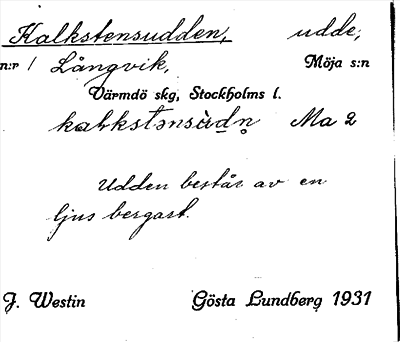 Kalkstensudden, udde,
n:r / Långvik, Möja s:n
Värmdö skg, Stockholms l.
kalkstənsùdn̥ Ma 2
Udden består av en
ljus bergart.
J. Westin Gösta Lundberg 1931